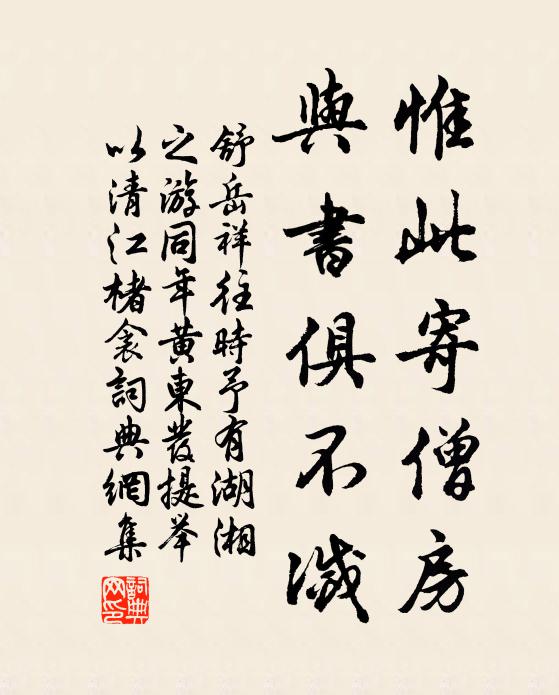 惟此寄僧房
與書俱不滅
舒岳祥往時予有湖湘
之游同年黃東發提举
以清江楮衾詞典網集
詞典網印